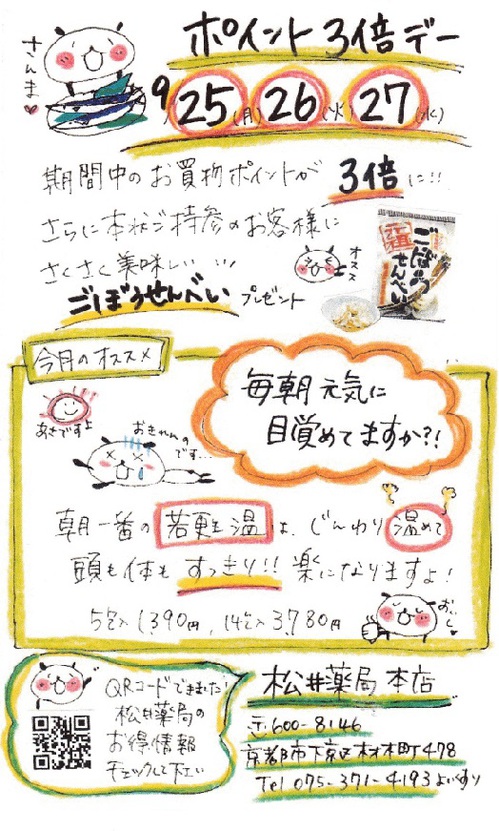 ポイント3倍デー
さんま
9/25(月)26(火)27(水)
期間中のお買物ポイントが3倍に!!
さらに本状ご持参のお客様に
さくさく美味しい
オススメ
ごぼうせんべい プレゼント
ごぼうせんべい
今月のオススメ
毎朝元気に
目覚めてますか?!
あさですよ
おきれんのです...
朝一番の若更生温は、じんわり温めて
頭も体もすっきり!!楽になりますよ!
5包入1,390円、14包入3,780円
おいしい
QRコードできました!
松井薬局の
お得情報
チェックして下さい
松井薬局本店
〒600-8146
京都市下京区材木町478
Tel 075-371-4193 よいくすり